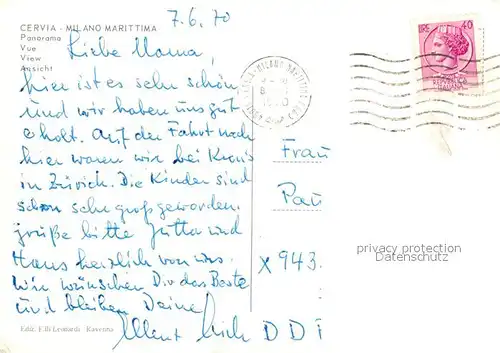 CERVIA - MILANO MARITTIMA
Panorama
Vue
View
Ansicht
7.6.70
Liebe Mama,
hier ist es sehr schön
und wir haben uns gut
erholt. Auf der Fahrt nach
hier waren wir bei
in Zürich. Die Kinder sind
schon sehr groß geworden.
grüße bitte Jutta und
Hans herzlich von uns.
Wir wünschen Dir das Beste
und bleiben Deine
Ediz. F.lli Leonardi - Ravenna
LIRE 40
Frau
Pau
X 943
DD
privacy protection
Datenschutz